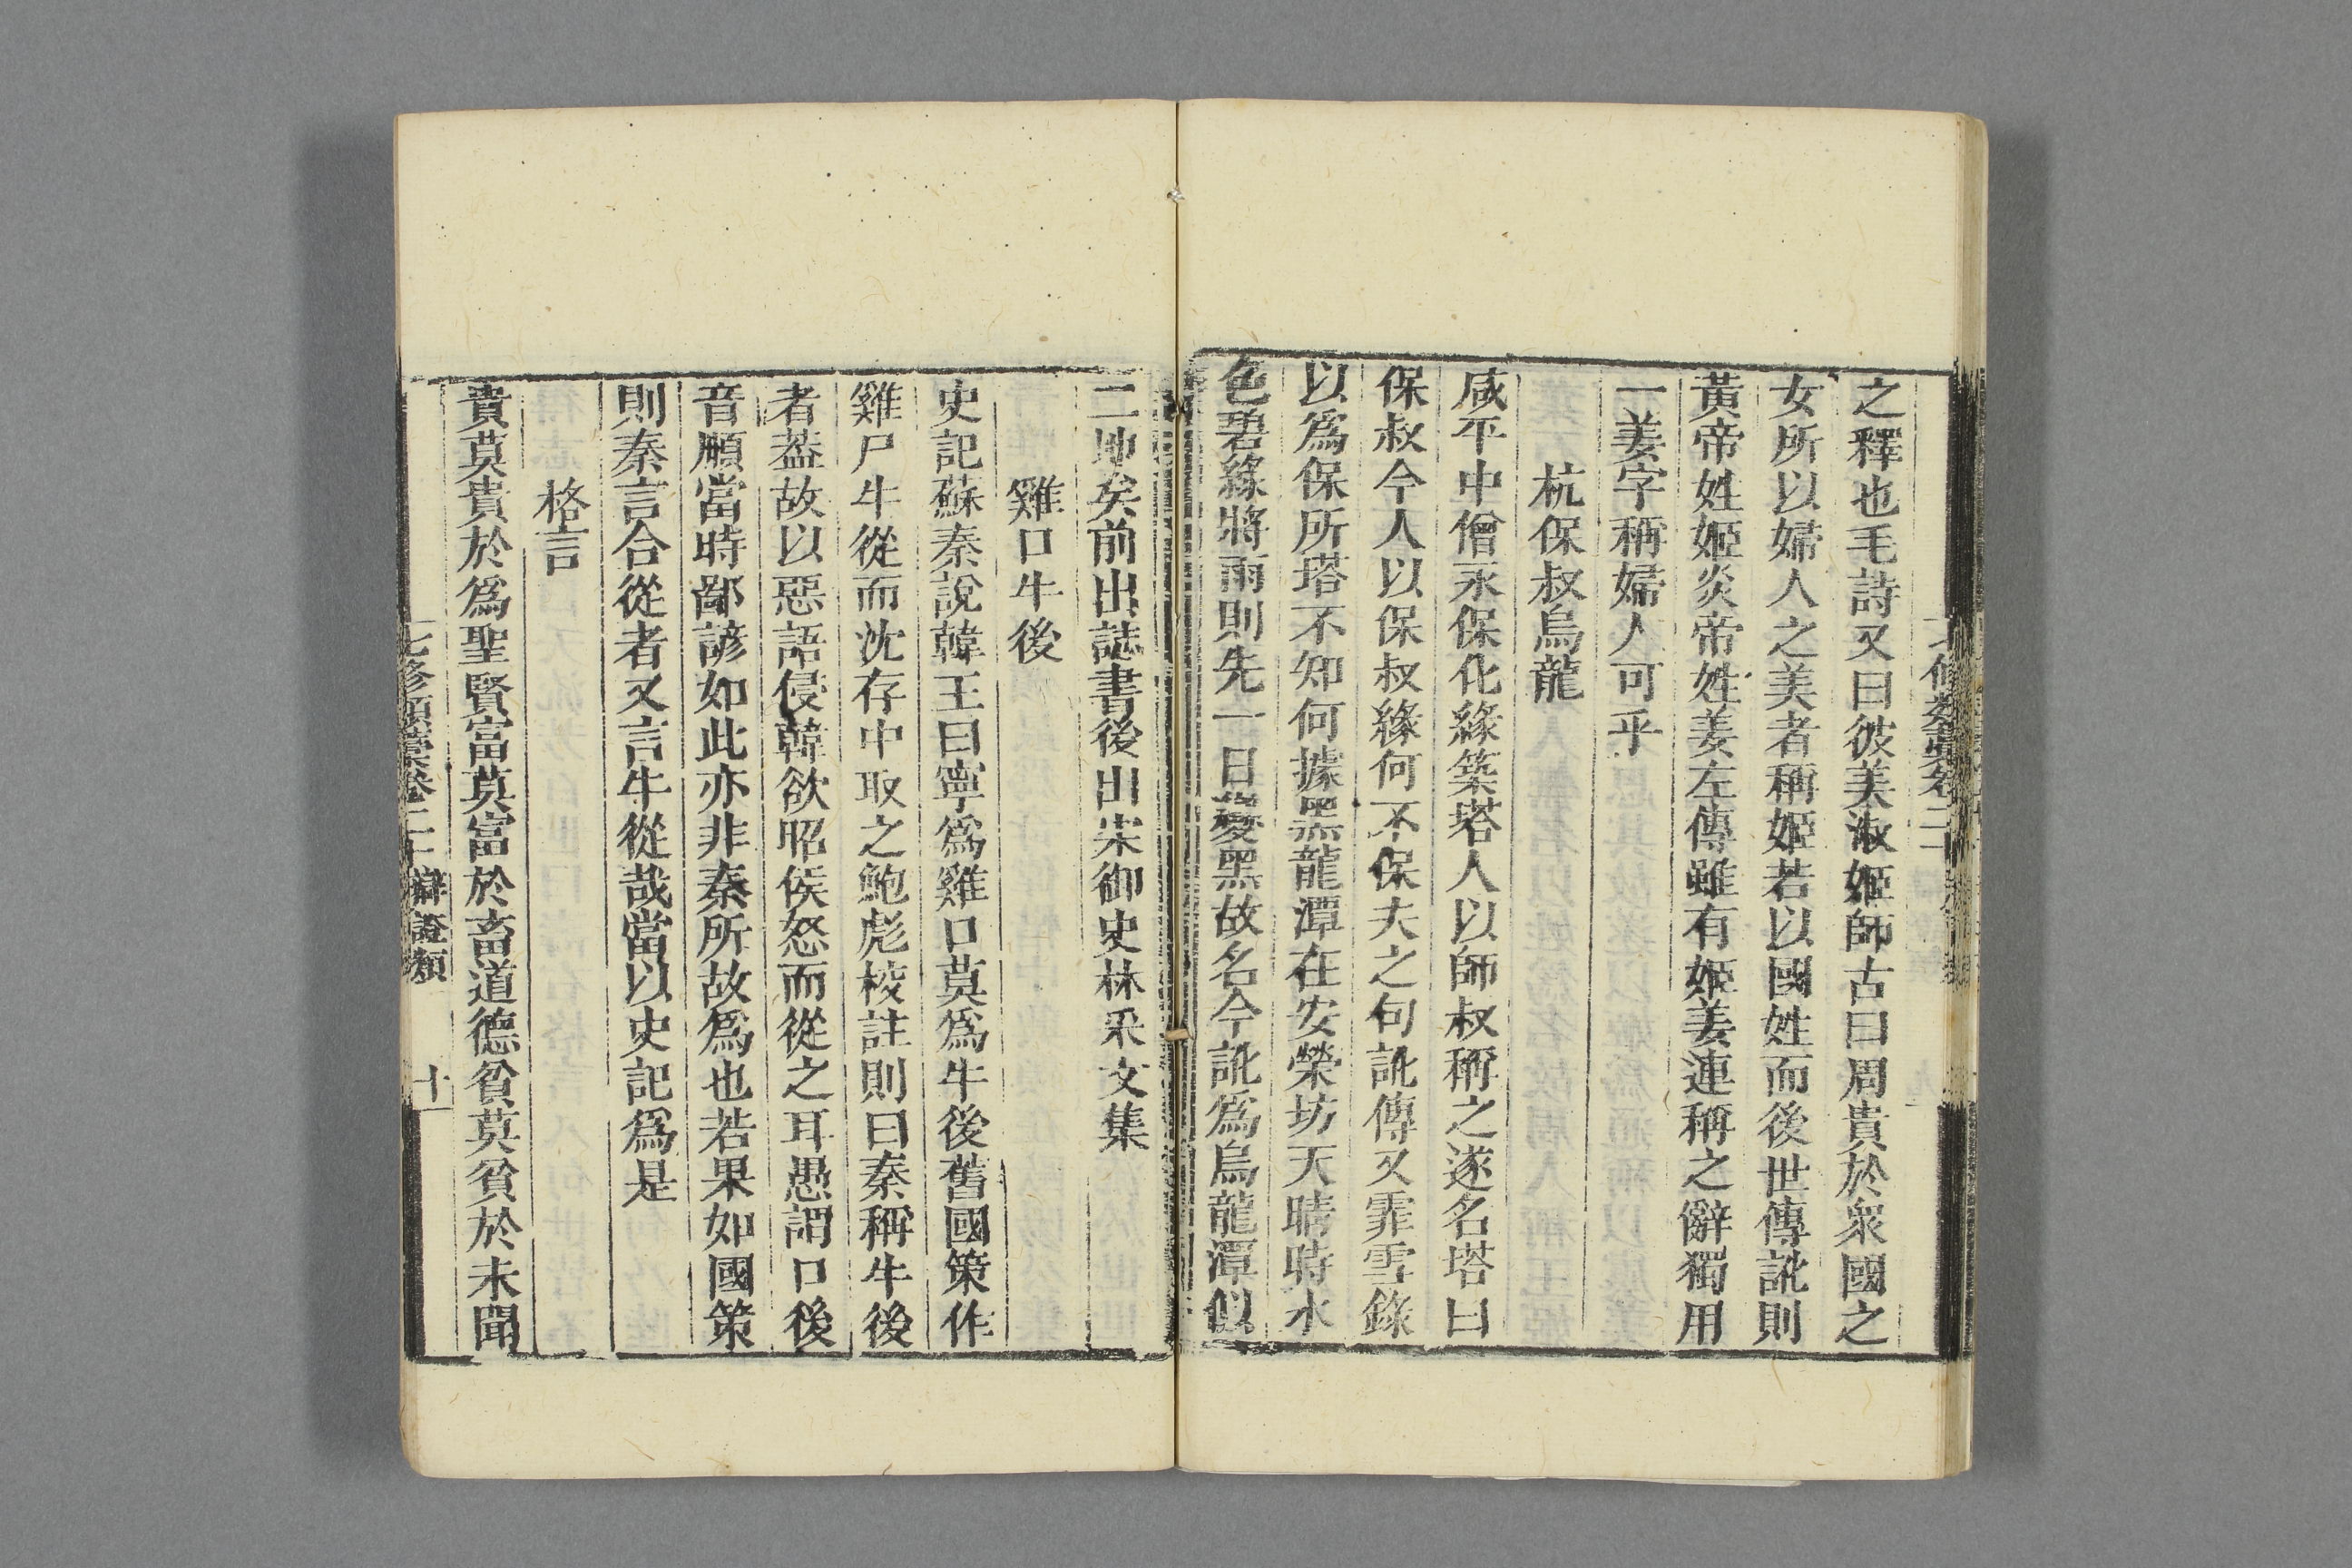 之釋也毛詩又曰彼美淑姬師古曰周貴於衆國之
女所以婦人之美者稱姬若以國姓而後世傳訛則
黃帝姓姬炎帝姓姜左傳雖有姬姜連稱之辭獨用
一姜字稱婦人可乎
杭保叔烏龍
咸平中僧永保化緣築塔人以師叔稱之遂名塔曰
保叔今人以保叔緣何不保夫之句訛傳又霏雪錄
以爲保所塔不知何據黑龍潭在安榮坊天晴時水
色碧綠將雨則先一日變黑故名今訛爲烏龍潭似
二地矣前出誌書後出宋御史林采文集
雞口牛後
史記蘇秦說韓王曰寧爲雞口莫爲牛後舊國策作
雞尸牛從而沈存中取之鮑彪校註則曰秦稱牛後
者葢故以惡語侵韓欲昭侯怒而從之耳愚謂口後
音願當時鄙諺如此亦非秦所故爲也若果如國策
則秦言合從者又言牛從哉當以史記爲是
格言
貴莫貴於爲聖賢富莫富於畜道德貧莫貧於未聞
七修類藁卷二十 辯證類 十